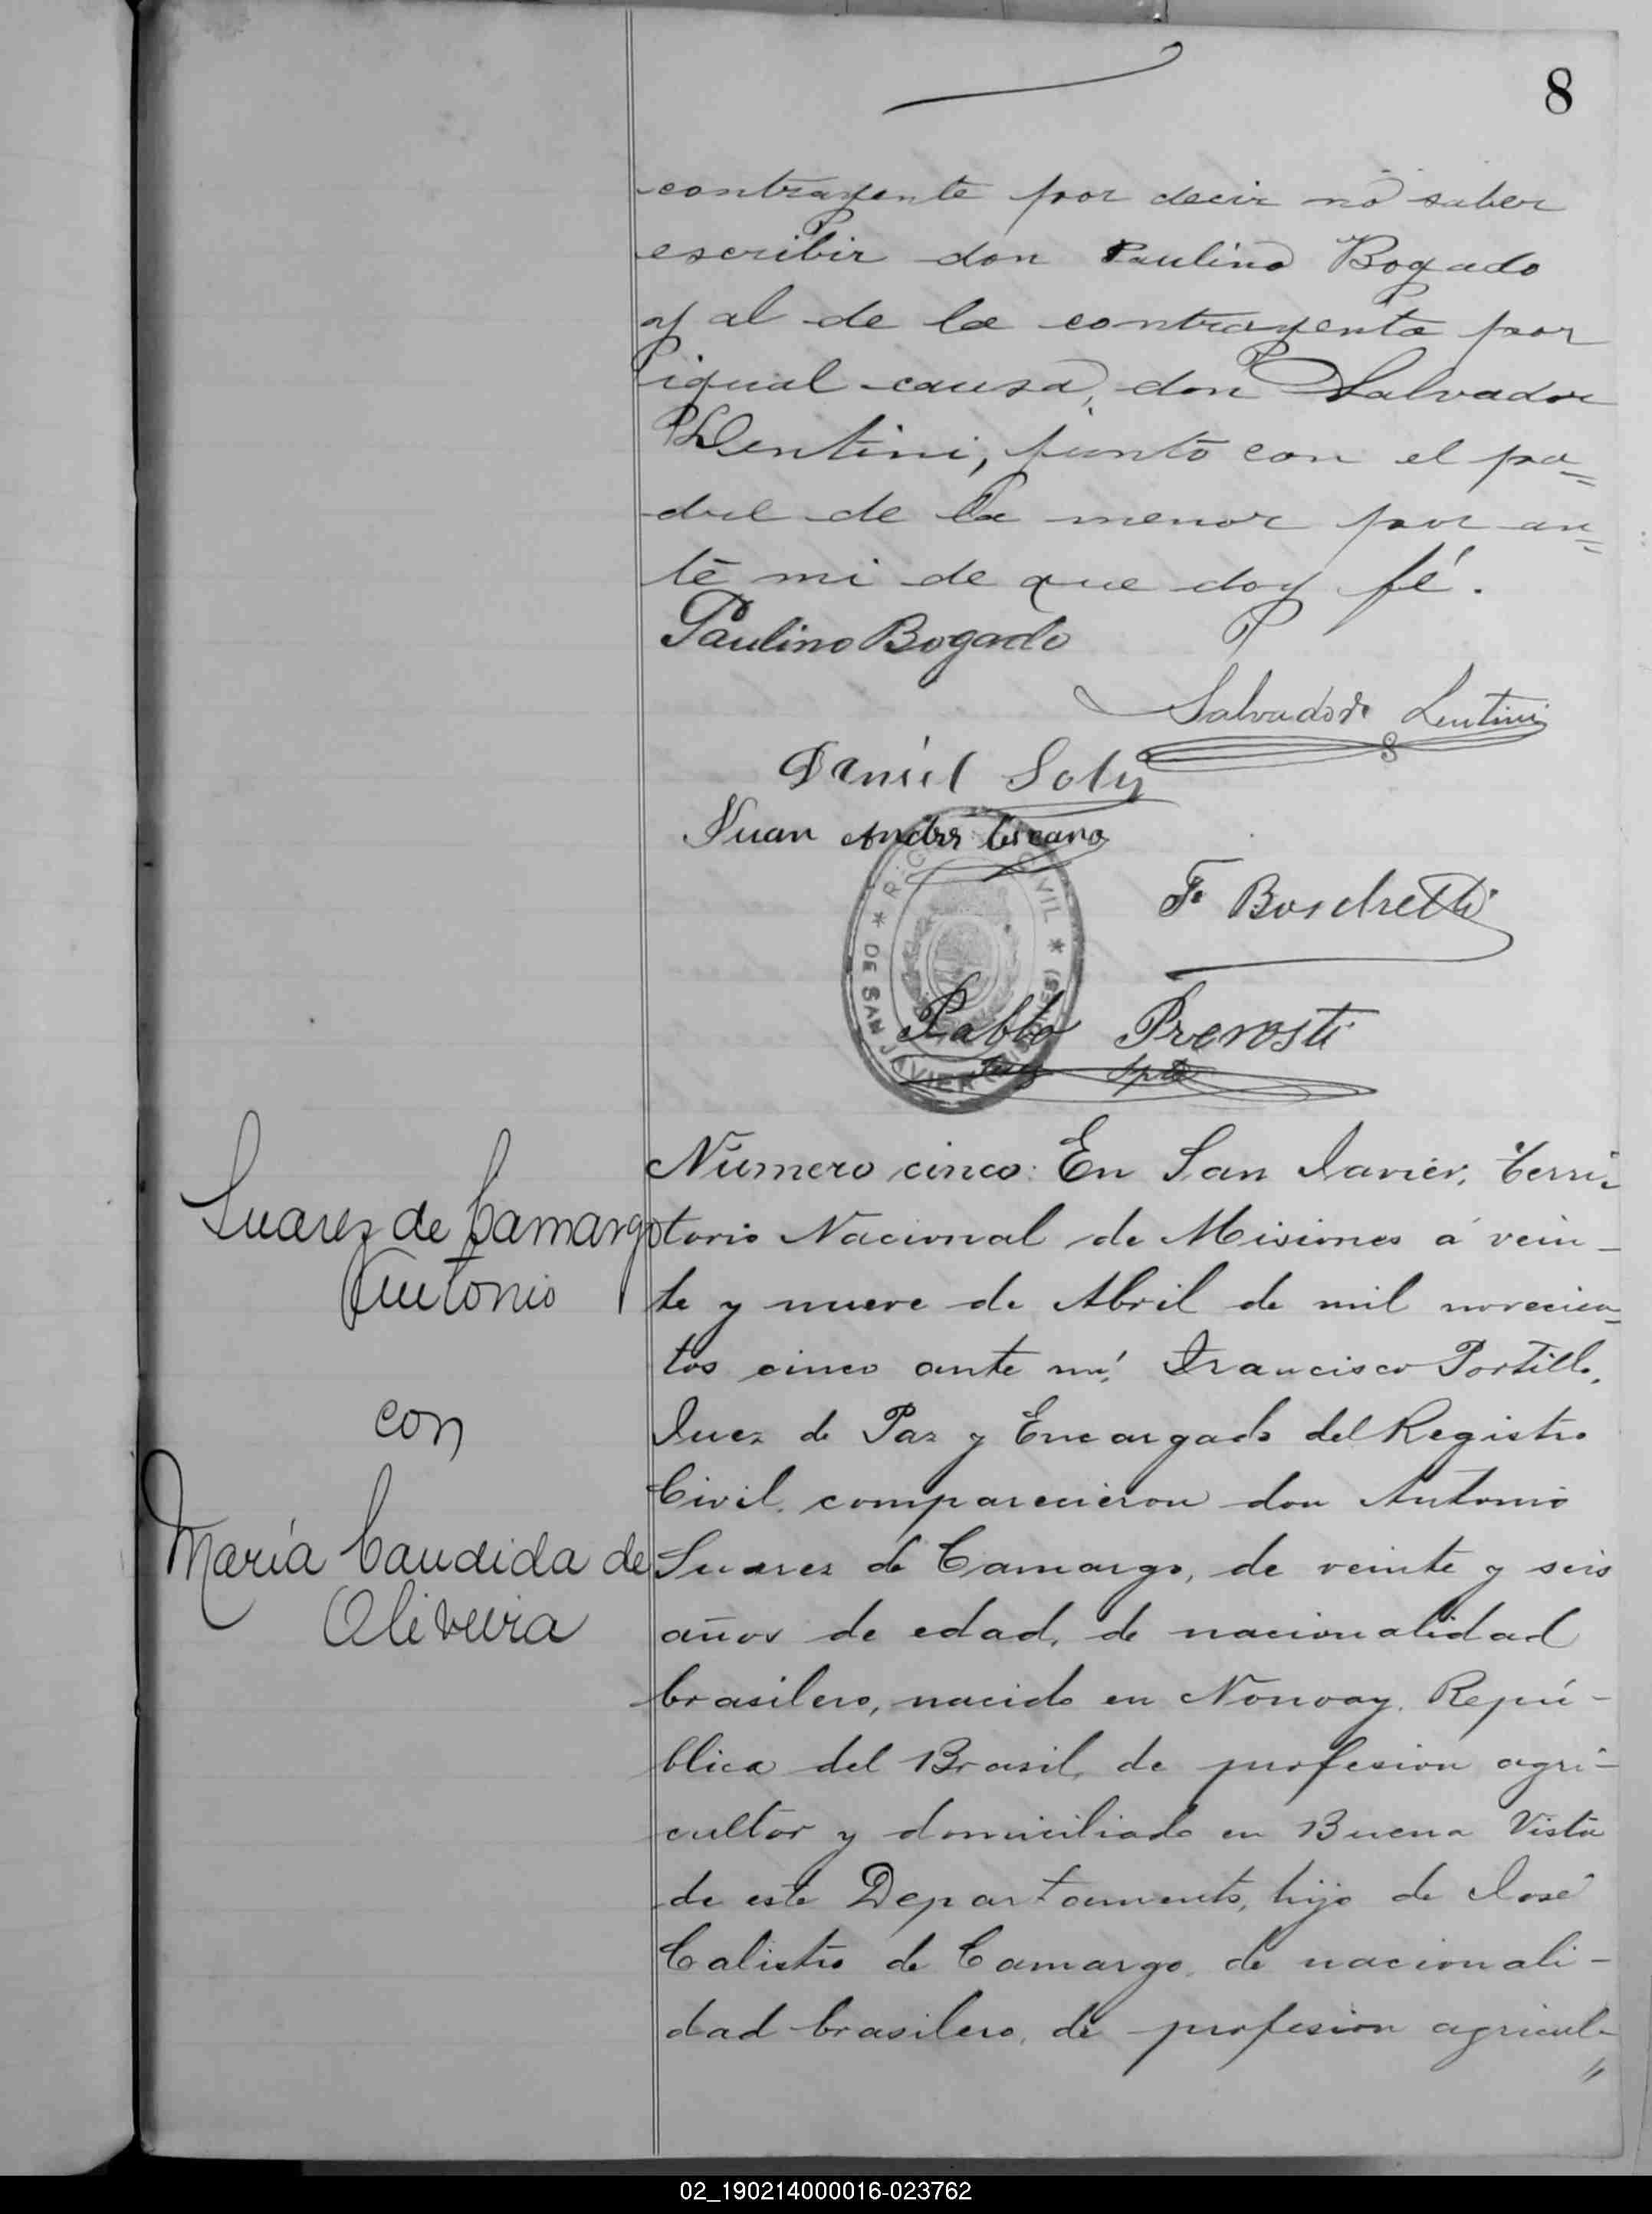 8
contrayente por decir no saber
escribir don Paulino Bogado
y al de la contrayenta por
igual causa, don Salvador
Lentini, junto con el pa=
dre de la menor por an=
te mi de que doy fé.
Paulino Bogado
Salvador Lentini
Daniel Soly
Juan Andrés
F. Boschetti
R. CIVIL
DE SAN JAVIER (MISIONES)
Pablo Prevosti
Juez Spte
Suarez de Camargo
Antonio
con
María Candida de
Oliveira
Número cinco: En San Javier, Terri-
torio Nacional de Misiones á vein-
te y nueve de Abril de mil novecien=
tos cinco ante mí, Francisco Portillo,
Juez de Paz y Encargado del Registro
Civil, comparecieron don Antonio
Suarez de Camargo, de veinte y seis
años de edad, de nacionalidad
brasilero, nacido en Nonoay, Repú-
blica del Brasil, de profesion agri-
cultor y domiciliado en Buena Vista
de este Departamento, hijo de José
Calistro de Camargo, de nacionali-
dad brasilero, de profesion agricul-
02_190214000016-023762